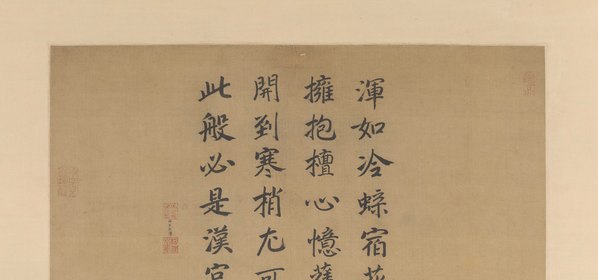 渾如冷蜨宿花
擁抱檀心憶舊
開到寒梢尤可
此般必是漢宮